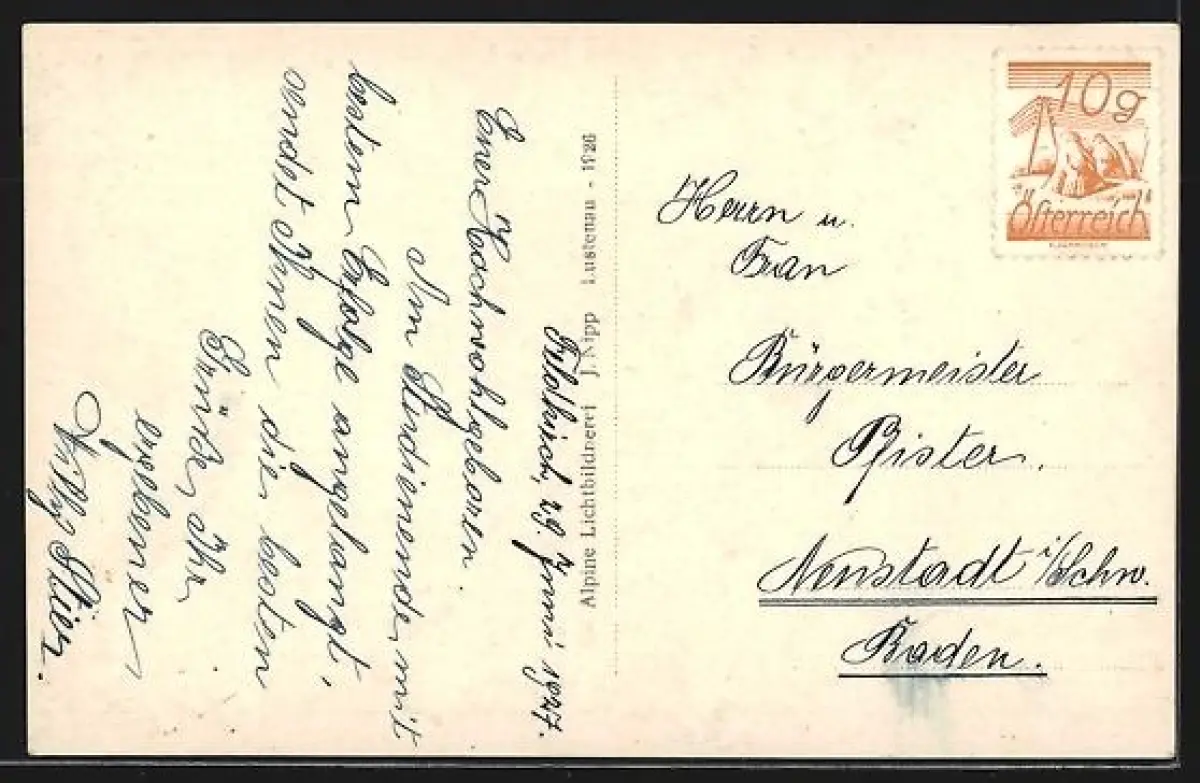 Feldkirch, 29. Juni 1927.
Euer Hochwohlgeboren.
Am Studienende, mit
bestem Erfolge angelangt,
sendet Ihnen die besten
Grüße, Ihr
ergebener
Stier.
Alpine Lichtbildnerei J. Nipp Lustenau - 1926
10g
Österreich
Herrn u.
Frau
Bürgermeister
Pfister.
Neustadt i/Schw.
Baden.